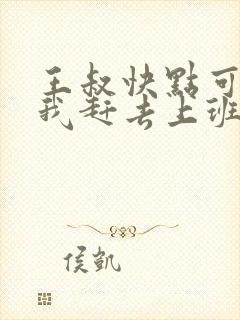 王叔快點可
我赶去上班
侯凱